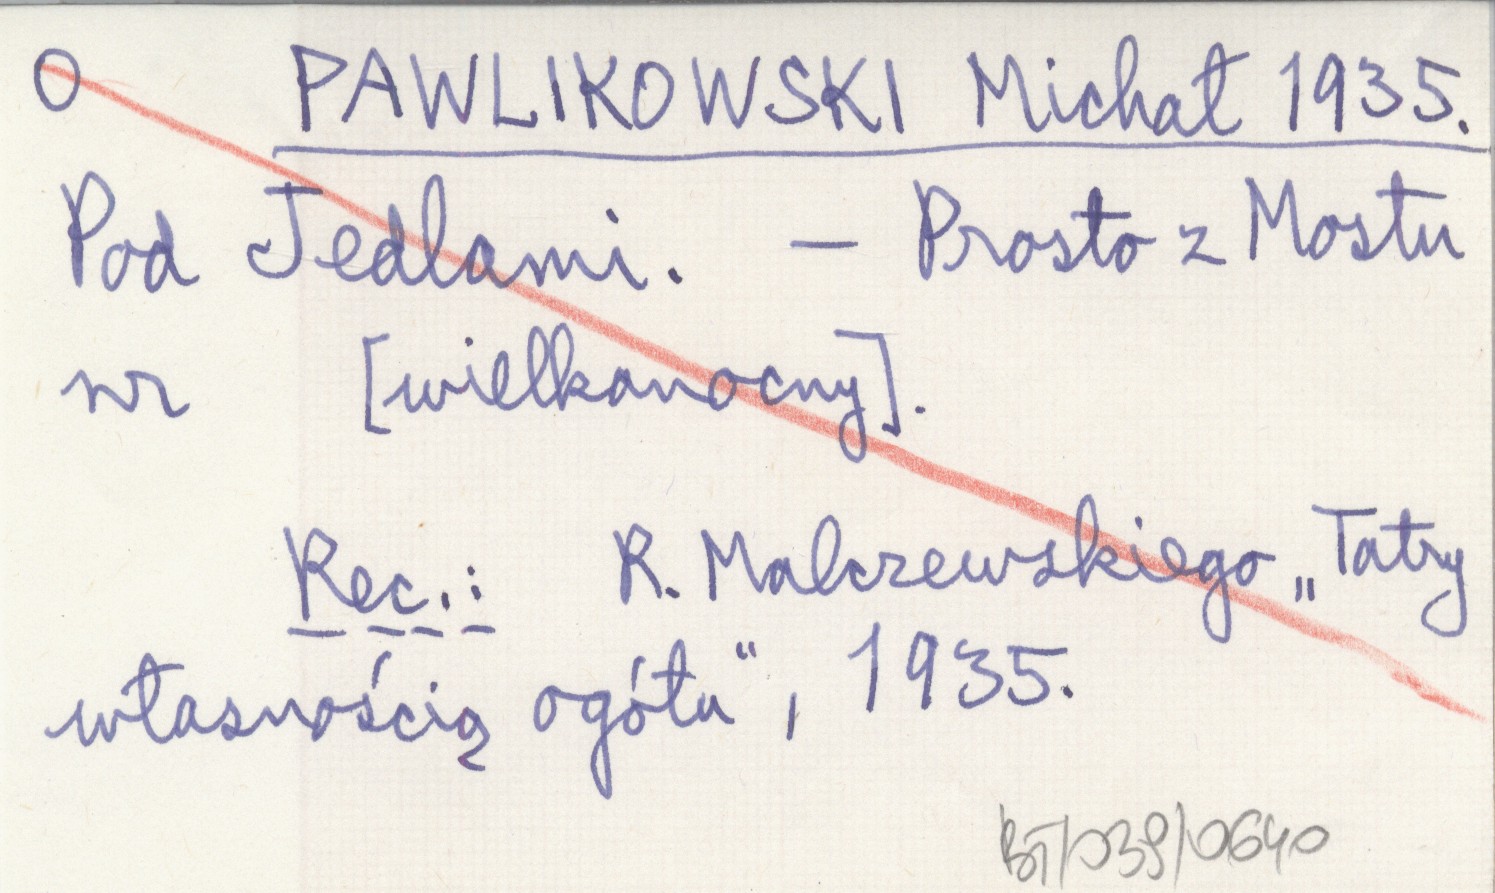 O PAWLIKOWSKI Michał 1935.
Pod Jedlami. — Prosto z Mostu
nr [wielkanocny].
Rec.: R. Malczewskiego „Tatry
własnością ogółu", 1935.
BT/039/0640